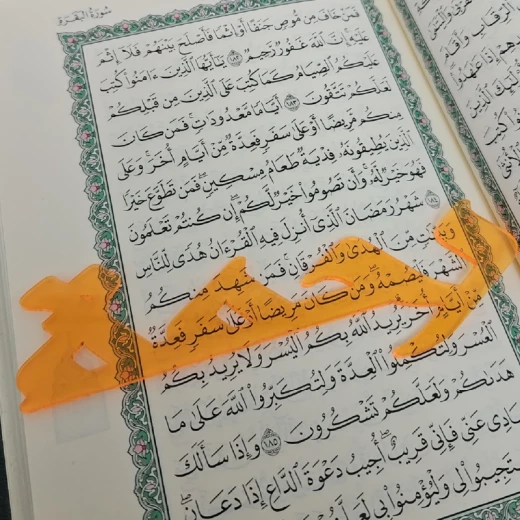 سُورَةُ البَقَرَةِ
فَمَنْ خَافَ مِن مُّوصٍ جَنَفًا أَوْ إِثْمًا فَأَصْلَحَ بَيْنَهُمْ فَلَآ إِثْمَ
عَلَيْهِ إِنَّ ٱللَّهَ غَفُورٌ رَّحِيمٌ ١٨٢ يَٰٓأَيُّهَا ٱلَّذِينَ ءَامَنُوا۟ كُتِبَ
عَلَيْكُمُ ٱلصِّيَامُ كَمَا كُتِبَ عَلَى ٱلَّذِينَ مِن قَبْلِكُمْ
لَعَلَّكُمْ تَتَّقُونَ ١٨٣ أَيَّامًا مَّعْدُودَٰتٍ فَمَن كَانَ
مِنكُم مَّرِيضًا أَوْ عَلَىٰ سَفَرٍ فَعِدَّةٌ مِّنْ أَيَّامٍ أُخَرَ وَعَلَى
ٱلَّذِينَ يُطِيقُونَهُۥ فِدْيَةٌ طَعَامُ مِسْكِينٍ فَمَن تَطَوَّعَ خَيْرًا
فَهُوَ خَيْرٌ لَّهُۥ وَأَن تَصُومُوا۟ خَيْرٌ لَّكُمْ إِن كُنتُمْ تَعْلَمُونَ
١٨٤ شَهْرُ رَمَضَانَ ٱلَّذِىٓ أُنزِلَ فِيهِ ٱلْقُرْءَانُ هُدًى لِّلنَّاسِ
وَبَيِّنَٰتٍ مِّنَ ٱلْهُدَىٰ وَٱلْفُرْقَانِ فَمَن شَهِدَ مِنكُمُ
ٱلشَّهْرَ فَلْيَصُمْهُ وَمَن كَانَ مَرِيضًا أَوْ عَلَىٰ سَفَرٍ فَعِدَّةٌ
مِّنْ أَيَّامٍ أُخَرَ يُرِيدُ ٱللَّهُ بِكُمُ ٱلْيُسْرَ وَلَا يُرِيدُ بِكُمُ
ٱلْعُسْرَ وَلِتُكْمِلُوا۟ ٱلْعِدَّةَ وَلِتُكَبِّرُوا۟ ٱللَّهَ عَلَىٰ مَا
هَدَىٰكُمْ وَلَعَلَّكُمْ تَشْكُرُونَ ١٨٥ وَإِذَا سَأَلَكَ
عَنِّى فَإِنِّى قَرِيبٌ أُجِيبُ دَعْوَةَ ٱلدَّاعِ إِذَا دَعَانِ
لِى وَلْيُؤْمِنُوا۟ بِى
رحمة